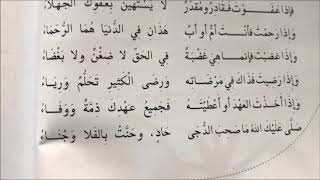 فَإِذَا عَفَوْتَ فَقَادِرٌ وَمُقَدَّرٌ لَا يَسْتَهِينُ بِعَفْوِكَ الْجُهَلَاءُ
وَإِذَا رَحِمْتَ فَأَنْتَ أُمٌّ أَوْ أَبٌ هَذَانِ فِي الدُّنْيَا هُمَا الرُّحَمَاءُ
وَإِذَا غَضِبْتَ فَإِنَّمَا هِيَ غَضْبَةٌ فِي الْحَقِّ لَا ضِغْنٌ وَلَا بَغْضَاءُ
وَإِذَا رَضِيتَ فَذَاكَ فِي مَرْضَاتِهِ وَرِضَى الْكَثِيرِ تَحَلُّمٌ وَرِيَاءُ
وَإِذَا أَخَذْتَ الْعَهْدَ أَوْ أَعْطَيْتَهُ فَجَمِيعُ عَهْدِكَ ذِمَّةٌ وَوَفَاءُ
صَلَّى عَلَيْكَ اللَّهُ مَا صَحِبَ الدُّجَى حَادٍ، وَحَنَّتْ بِالْفَلَا وَجْنَاءُ